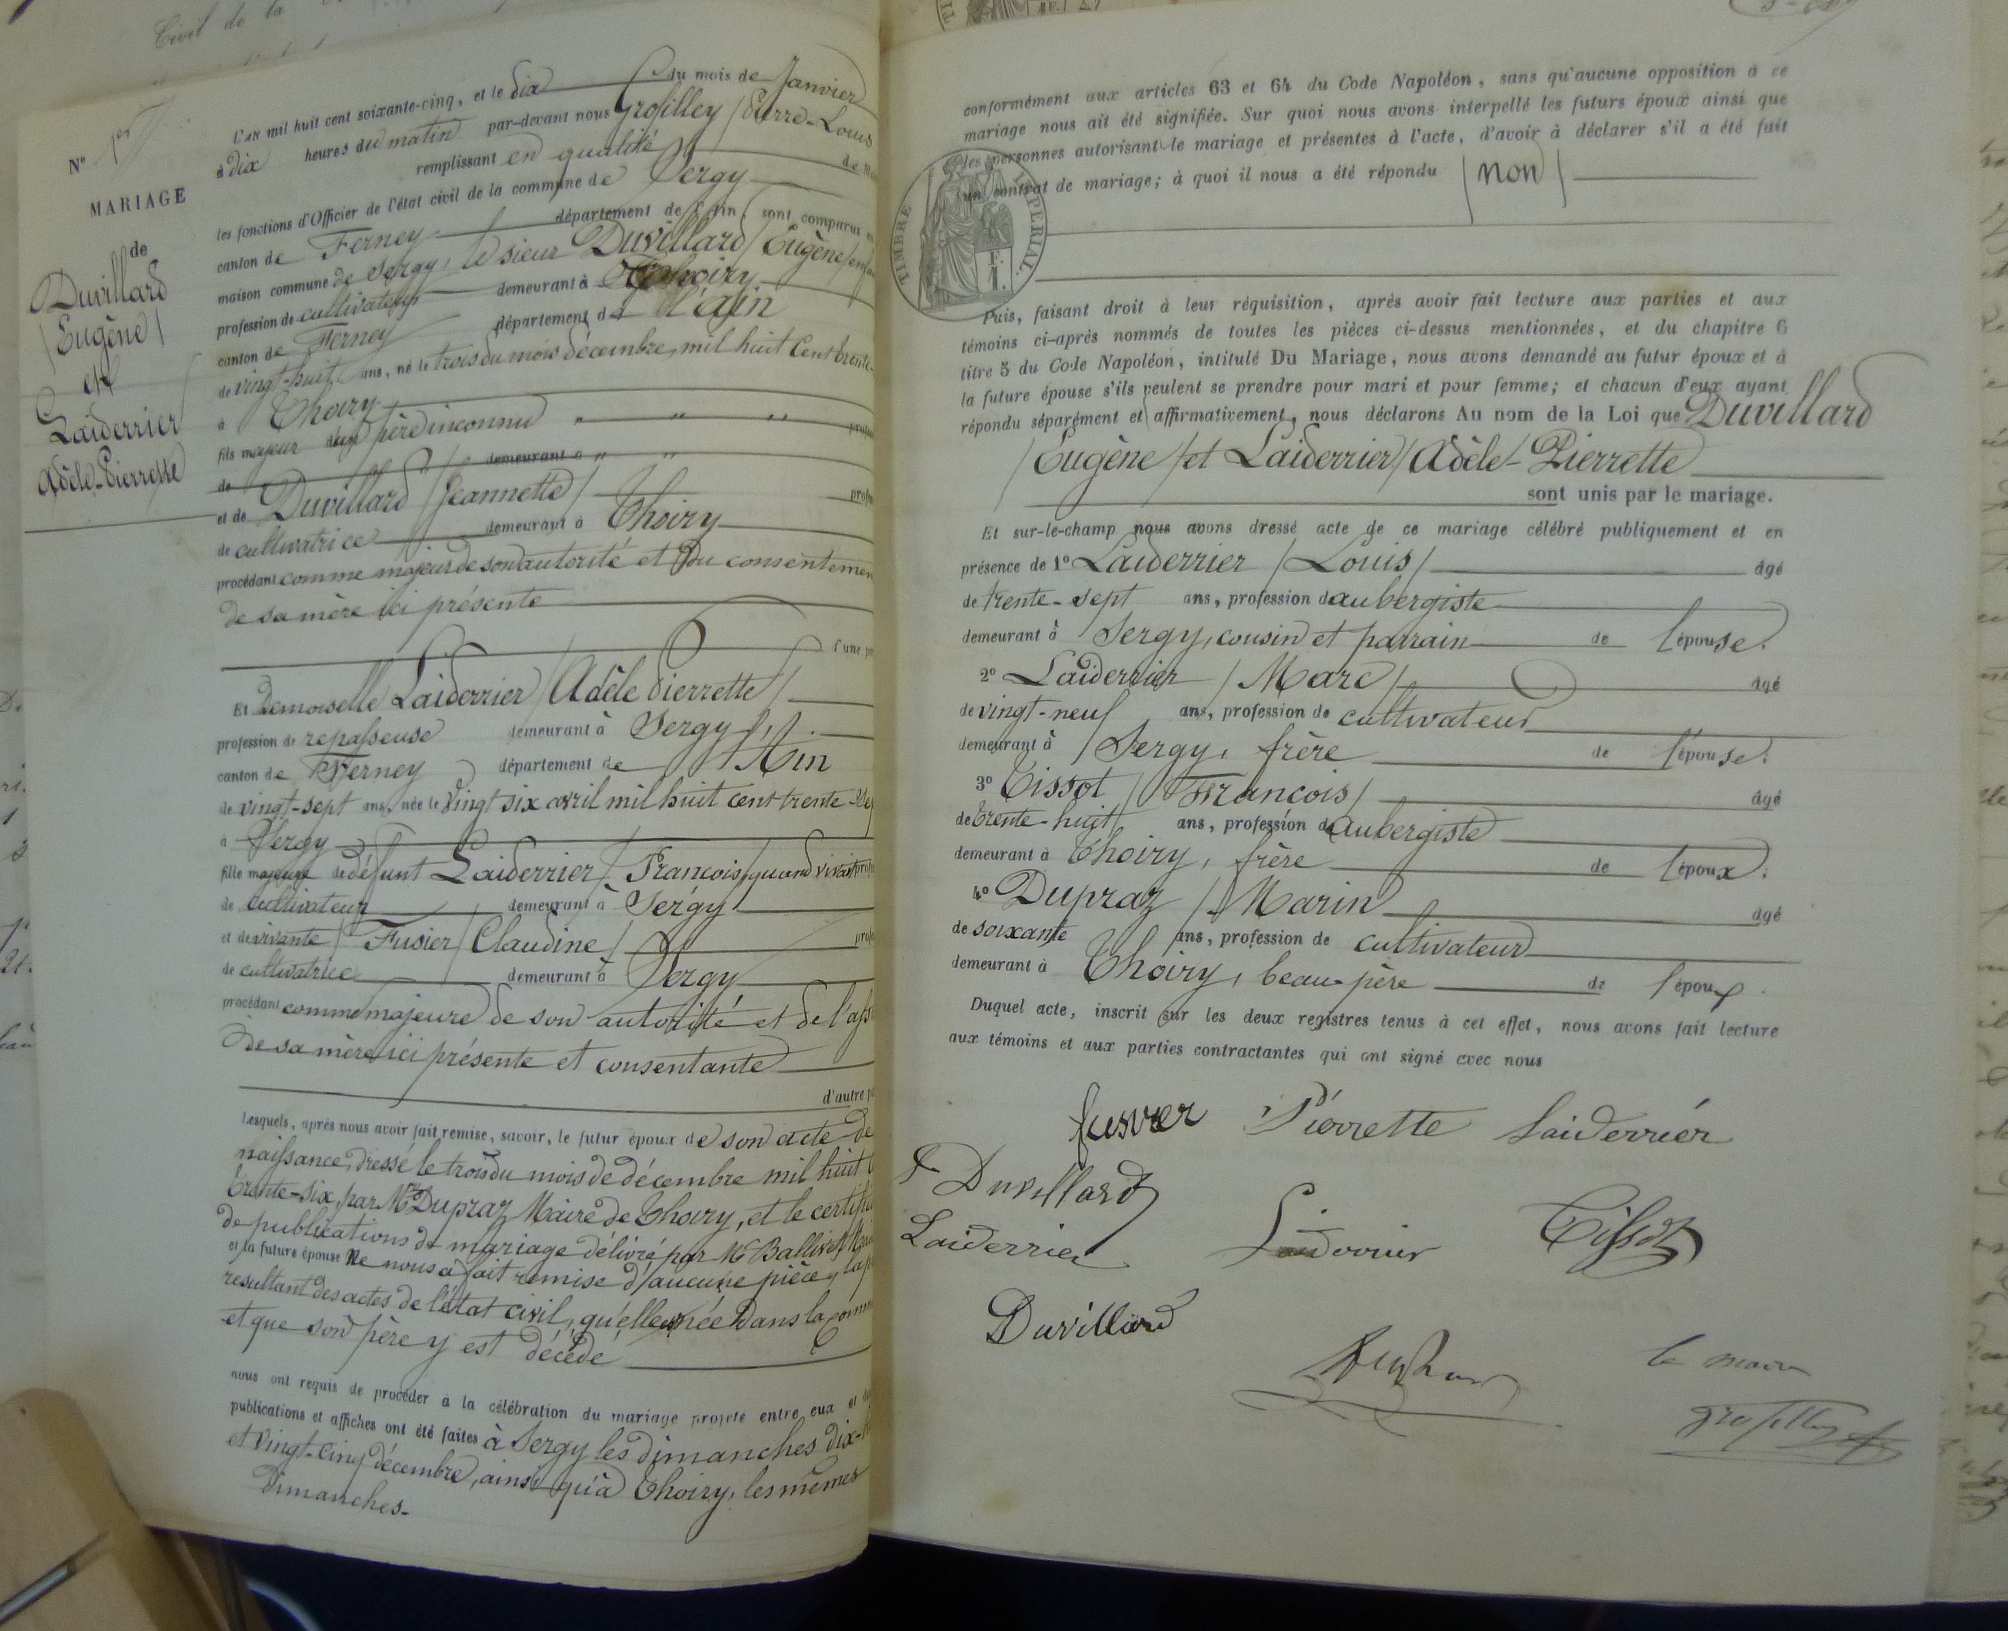 Civil de la
N° 1er
MARIAGE
de
Duvillard
(Eugène)
et
Laiderrier
Adèle-Pierrette
L'an mil huit cent soixante-cinq, et le dix du mois de Janvier
à dix heures du matin par-devant nous Grosfilley (Pierre-Louis
remplissant en qualité de M
les fonctions d'Officier de l'état civil de la commune de Sergy
canton de Ferney département de l'Ain, sont comparus en
maison commune de Sergy, le sieur Duvillard (Eugène)
profession de cultivateur demeurant à Thoiry
canton de Ferney département de l'Ain
de vingt-huit ans, né le trois du mois décembre, mil huit cent trente-
à Thoiry
fils majeur d'un père inconnu " " "
de demeurant à " "
et de Duvillard (Jeannette)
de cultivatrice demeurant à Thoiry
procédant comme majeur de son autorité et du consentemen
de sa mère ici présente
l'une p
Et Demoiselle Laiderrier (Adèle Pierrette)
profession de repasseuse demeurant à Sergy
canton de Ferney département de l'Ain
de vingt-sept ans, née le vingt six avril mil huit cent trente-sep
à Sergy
fille majeure de défunt Laiderrier (François) quand vivait
de cultivateur demeurant à Sergy
et de vivante (Fusier) Claudine
de cultivatrice demeurant à Sergy
procédant comme majeure de son autorité et de l'ass
de sa mère ici présente et consentante
d'autre p
Lesquels, après nous avoir fait remise, savoir, le futur époux de son acte de
naissance, dressé le trois du mois de décembre mil huit c
trente-six, par Mr Dupraz Maire de Thoiry, et le certific
de publications de mariage délivré par Mr Ballivet Mai
et la future épouse Ne nous a fait remise d'aucune pièce,
resultant des actes de l'état civil, qu'elle est née dans la comm
et que son père y est décédé
nous ont requis de procéder à la célébration du mariage projeté entre eux et
publications et affiches ont été faites à Sergy les dimanches dix-
et vingt-cinq décembre, ainsi qu'à Thoiry, les mêmes
Dimanches.
conformément aux articles 63 et 64 du Code Napoléon, sans qu'aucune opposition à ce
mariage nous ait été signifiée. Sur quoi nous avons interpellé les futurs époux ainsi que
les personnes autorisant le mariage et présentes à l'acte, d'avoir à déclarer s'il a été fait
un contrat de mariage; à quoi il nous a été répondu (non)
TIMBRE IMPERIAL.
Puis, faisant droit à leur réquisition, après avoir fait lecture aux parties et aux
témoins ci-après nommés de toutes les pièces ci-dessus mentionnées, et du chapitre 6
titre 5 du Code Napoléon, intitulé Du Mariage, nous avons demandé au futur époux et à
la future épouse s'ils veulent se prendre pour mari et pour femme; et chacun d'eux ayant
répondu séparément et affirmativement, nous déclarons Au nom de la Loi que Duvillard
(Eugène) et Laiderrier (Adèle-Pierrette
sont unis par le mariage.
Et sur-le-champ nous avons dressé acte de ce mariage célébré publiquement et en
présence de 1° Laiderrier (Louis) âgé
de trente-sept ans, profession d'aubergiste
demeurant à Sergy, cousin et parrain de l'épouse.
2° Laiderrier (Marc) âgé
de vingt-neuf ans, profession de cultivateur
demeurant à Sergy, frère de l'épouse.
3° Tissot (François) âgé
de trente-huit ans, profession d'aubergiste
demeurant à Thoiry, frère de l'époux.
4° Dupraz (Marin âgé
de soixante ans, profession de cultivateur
demeurant à Thoiry, beau-père de l'époux.
Duquel acte, inscrit sur les deux registres tenus à cet effet, nous avons fait lecture
aux témoins et aux parties contractantes qui ont signé avec nous
fusier Pierrette Laiderrier
Duvillard
Laiderrier Laiderrier Tissot
Duvillard
le maire
Grosfilley